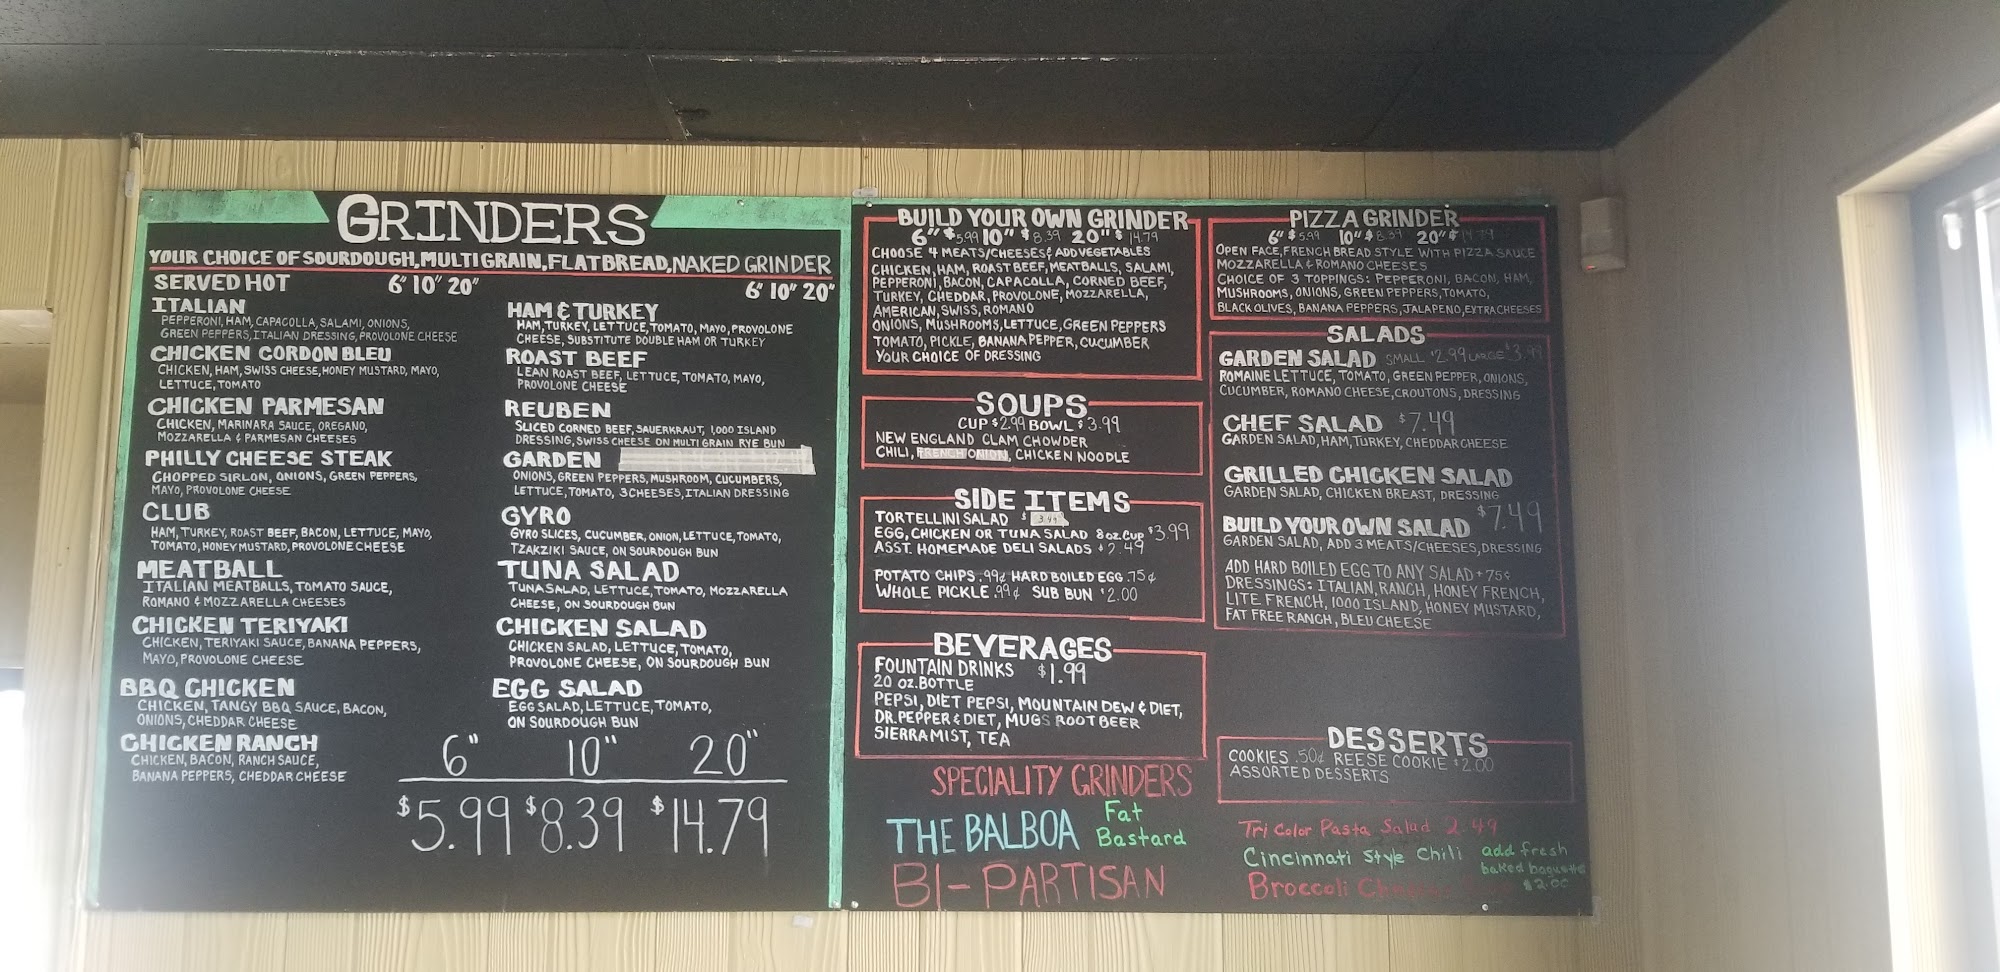 GRINDERS
YOUR CHOICE OF SOURDOUGH, MULTI GRAIN, FLATBREAD, NAKED GRINDER
SERVED HOT 6" 10" 20"
6" 10" 20"
ITALIAN
PEPPERONI, HAM, CAPACOLLA, SALAMI, ONIONS,
GREEN PEPPERS, ITALIAN DRESSING, PROVOLONE CHEESE
CHICKEN CORDON BLEU
CHICKEN, HAM, SWISS CHEESE, HONEY MUSTARD, MAYO,
LETTUCE, TOMATO
CHICKEN PARMESAN
CHICKEN, MARINARA SAUCE, OREGANO,
MOZZARELLA & PARMESAN CHEESES
PHILLY CHEESE STEAK
CHOPPED SIRLON, ONIONS, GREEN PEPPERS,
MAYO, PROVOLONE CHEESE
CLUB
HAM, TURKEY, ROAST BEEF, BACON, LETTUCE, MAYO,
TOMATO, HONEY MUSTARD, PROVOLONE CHEESE
MEATBALL
ITALIAN MEATBALLS, TOMATO SAUCE,
ROMANO & MOZZARELLA CHEESES
CHICKEN TERIYAKI
CHICKEN, TERIYAKI SAUCE, BANANA PEPPERS,
MAYO, PROVOLONE CHEESE
BBQ CHICKEN
CHICKEN, TANGY BBQ SAUCE, BACON,
ONIONS, CHEDDAR CHEESE
CHICKEN RANCH
CHICKEN, BACON, RANCH SAUCE,
BANANA PEPPERS, CHEDDAR CHEESE
HAM & TURKEY
HAM, TURKEY, LETTUCE, TOMATO, MAYO, PROVOLONE
CHEESE, SUBSTITUTE DOUBLE HAM OR TURKEY
ROAST BEEF
LEAN ROAST BEEF, LETTUCE, TOMATO, MAYO,
PROVOLONE CHEESE
REUBEN
SLICED CORNED BEEF, SAUERKRAUT, 1,000 ISLAND
DRESSING, SWISS CHEESE ON MULTI GRAIN RYE BUN
GARDEN
ONIONS, GREEN PEPPERS, MUSHROOM, CUCUMBERS,
LETTUCE, TOMATO, 3 CHEESES, ITALIAN DRESSING
GYRO
GYRO SLICES, CUCUMBER, ONION, LETTUCE, TOMATO,
TZAKZIKI SAUCE, ON SOURDOUGH BUN
TUNA SALAD
TUNA SALAD, LETTUCE, TOMATO, MOZZARELLA
CHEESE, ON SOURDOUGH BUN
CHICKEN SALAD
CHICKEN SALAD, LETTUCE, TOMATO,
PROVOLONE CHEESE, ON SOURDOUGH BUN
EGG SALAD
EGG SALAD, LETTUCE, TOMATO,
ON SOURDOUGH BUN
6" 10" 20"
$5.99 $8.39 $14.79
BUILD YOUR OWN GRINDER
6" $5.99 10" $8.39 20" $14.79
CHOOSE 4 MEATS/CHEESES & ADD VEGETABLES
CHICKEN, HAM, ROAST BEEF, MEATBALLS, SALAMI,
PEPPERONI, BACON, CAPACOLLA, CORNED BEEF,
TURKEY, CHEDDAR, PROVOLONE, MOZZARELLA,
AMERICAN, SWISS, ROMANO
ONIONS, MUSHROOMS, LETTUCE, GREEN PEPPERS
TOMATO, PICKLE, BANANA PEPPER, CUCUMBER
YOUR CHOICE OF DRESSING
SOUPS
CUP $2.99 BOWL $3.99
NEW ENGLAND CLAM CHOWDER
CHILI, FRENCH ONION, CHICKEN NOODLE
SIDE ITEMS
TORTELLINI SALAD $3.99
EGG, CHICKEN OR TUNA SALAD 8 oz. Cup $3.99
ASST. HOMEMADE DELI SALADS $2.49
POTATO CHIPS .99¢ HARD BOILED EGG .75¢
WHOLE PICKLE .99¢ SUB BUN $2.00
BEVERAGES
FOUNTAIN DRINKS $1.99
20 OZ. BOTTLE
PEPSI, DIET PEPSI, MOUNTAIN DEW & DIET,
DR. PEPPER & DIET, MUGS ROOT BEER
SIERRA MIST, TEA
SPECIALITY GRINDERS
THE BALBOA Fat
Bastard
BI-PARTISAN
PIZZA GRINDER
6" $5.99 10" $8.39 20" $14.79
OPEN FACE, FRENCH BREAD STYLE WITH PIZZA SAUCE
MOZZARELLA & ROMANO CHEESES
CHOICE OF 3 TOPPINGS: PEPPERONI, BACON, HAM,
MUSHROOMS, ONIONS, GREEN PEPPERS, TOMATO,
BLACK OLIVES, BANANA PEPPERS, JALAPENO, EXTRA CHEESES
SALADS
GARDEN SALAD SMALL $2.99 LARGE $3.99
ROMAINE LETTUCE, TOMATO, GREEN PEPPER, ONIONS,
CUCUMBER, ROMANO CHEESE, CROUTONS, DRESSING
CHEF SALAD $7.49
GARDEN SALAD, HAM, TURKEY, CHEDDAR CHEESE
GRILLED CHICKEN SALAD
GARDEN SALAD, CHICKEN BREAST, DRESSING
BUILD YOUR OWN SALAD $7.49
GARDEN SALAD, ADD 3 MEATS/CHEESES, DRESSING
ADD HARD BOILED EGG TO ANY SALAD + 75¢
DRESSINGS: ITALIAN, RANCH, HONEY FRENCH,
LITE FRENCH, 1000 ISLAND, HONEY MUSTARD,
FAT FREE RANCH, BLEU CHEESE
DESSERTS
COOKIES .50¢ REESE COOKIE $2.00
ASSORTED DESSERTS
Tri Color Pasta Salad 2.49
Cincinnati Style Chili add fresh
baked baguette
Broccoli $2.00